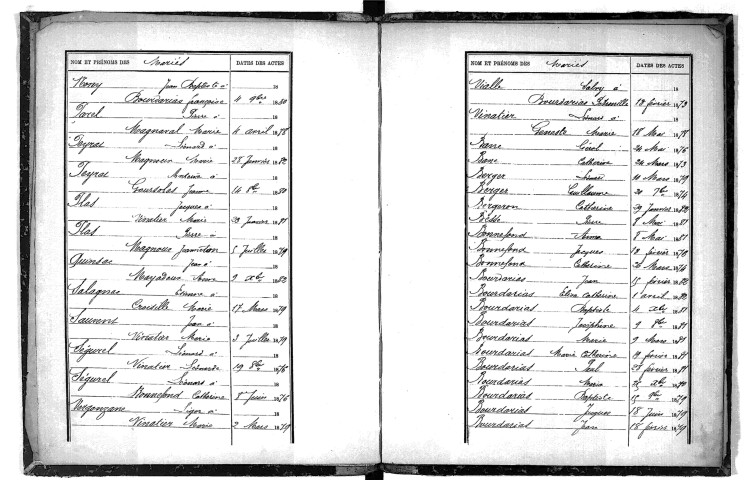 NOM ET PRÉNOMS DES Mariés DATES DES ACTES
Jean Baptiste à 18
Bourdarias françoise 4 9bre 1880
Pierre à 18
Magnaval Marie 4 avril 1878
Teyras Léonard à 18
Magnoux Marie 28 Janvier 1882
Teyras à 18
Jeanne 14 8bre 1880
Plas Jacques à 18
Vinatier Marie 29 Janvier 1881
Plas Pierre à 18
Magnoux 5 Juillet 1879
Quinsac Jean à 18
9 Xbre 1882
Salagnac Etienne à 18
Croizille Marie 17 Mars 1879
Laurent Jean à 18
Vinatier Marie 3 Juillet 1879
Ségurel Léonard à 18
Vinatier Léonarde 19 8bre 1876
Ségurel Léonard à 18
Bonnefond Catherine 8 Juin 1876
à 18
Vinatier Marie 2 Mars 1879
NOM ET PRÉNOMS DES Mariés DATES DES ACTES
Vialle à 18
Bourdarias Petronille 18 février 1873
Vinatier Léonard à 18
Geneste Marie 18 Mai 1878
Barre 24 Mai 1876
Barre Catherine 24 Mars 1873
Berger 11 Mars 1879
Berger Guillaume 20 7bre 1874
Bergeron Catherine 29 Janvier 1882
Pierre 8 Mai 1881
Bonnefond Anna 5 Mai 1881
Bonnefond Jacques 18 février 1878
Bonnefond Catherine 26 Mars 1876
Bourdarias Jean 15 février 1882
Bourdarias Elise Catherine 1 avril 1882
Bourdarias Baptiste 4 Xbre 1881
Bourdarias Joséphine 9 8bre 1881
Bourdarias Marie 9 Mars 1881
Bourdarias Marie Catherine 19 février 1881
Bourdarias Paul 28 février 1881
Bourdarias Marie 25 Xbre 1880
Bourdarias Baptiste 15 9bre 1879
Bourdarias Jacques 18 Juin 1879
Bourdarias Jean 18 février 1879